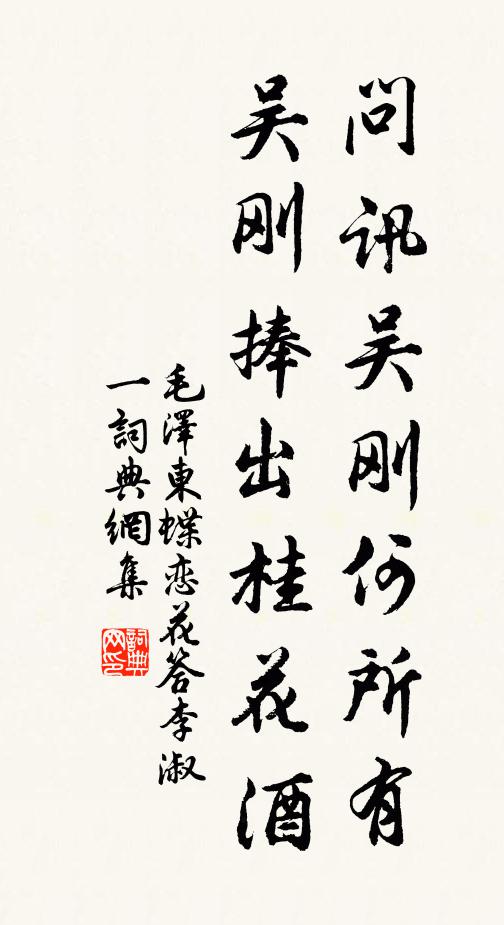 问讯吴刚何所有
吴刚捧出桂花酒
毛澤東蝶恋花答李淑
一詞典網集
詞典
网印